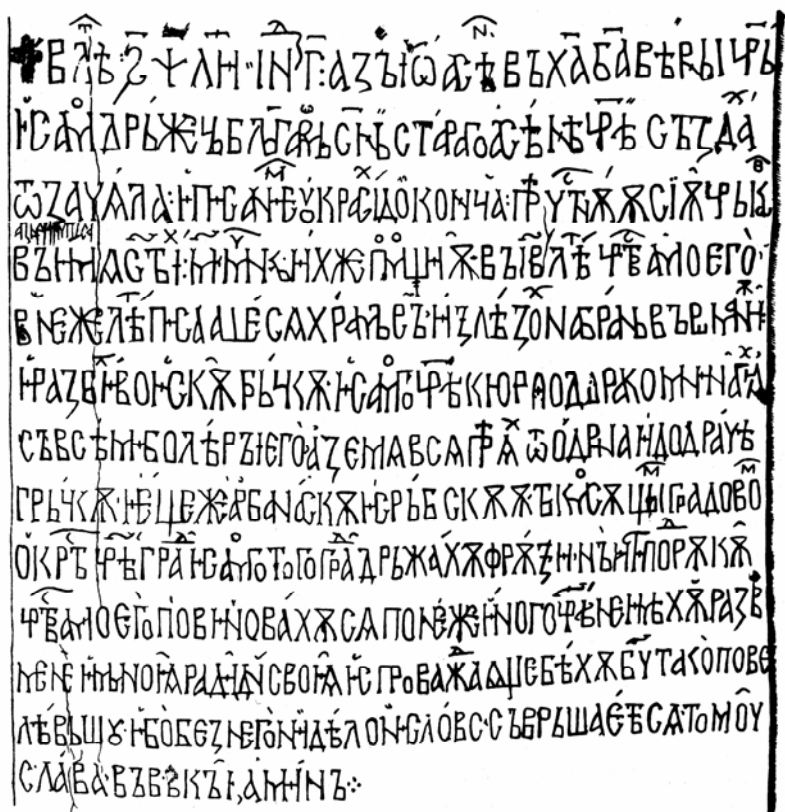 † В лѣⷮ ҂ѕ҃ѱ҃л҃и҃ · інⷣ г҃ : азъ Іѡ҃ Асѣ въ Ха҃ Ба҃ вѣрꙑ цр҃ь
и самⷪдрьжець блъгарⷪмь сн҃ь стараго Асѣнѣ цр҃ѣ създаⷯ
ѿ зачѧла · и писаниеⷨ оукрасиⷯ до конча · прⷱ҇тнѫѫ сіѫ црꙑкⷡ
въ имѧ ст҃ꙑⷯ · м҃ · мⷱ҇никъ ихже помⷪщиѫ · въ в҃і лѣⷮ цр҃тва моего ·
в неже лѣⷮ писааше сѧ храмь съ · излѣзоⷯ на брань въ Рꙍманиѫ
и разбиⷯ воискѫ грьчкѫ · и самⷪго цр҃ѣ кюр Ѳодꙍра Комнина ѧⷯ
съ всѣми болѣрꙑ его · а земѧ всѧ прⷺѧⷯ ѿ Ѡдрина и до Драчѣ
грьчкѫ · и еще же арбанаскѫ и срьбскѫѫ · тъкмⷪ сѫщыⷨ градовоⷨ
ѡкрⷭтъ цр҃ѣграⷣ и самⷪго того граⷣ дрьжахѫ фрѫзи · нъ и ти пⷣо рѫкѫ
цр҃тва моего повиновахѫ сѧ понеже иного цр҃ѣ не имѣхѫ развⷺ
мене и мьноѭ ради дни своѧ испроваждаꙍще бѣхѫ б҃у тако пове
лѣвьшꙋ · ибо без него ни дѣло ни слово съврьшаетъ сѧ · томоу
слава въ вѣкꙑ, аминъ ⁘